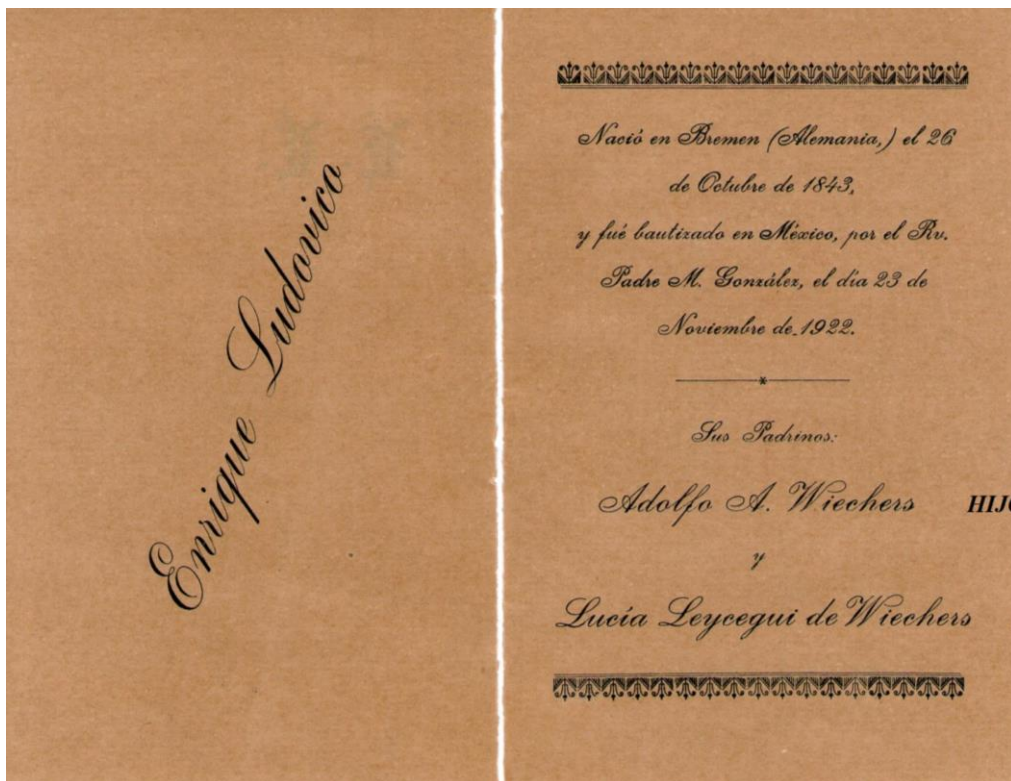 Enrique Ludovico
Nació en Bremen (Alemania,) el 26
de Octubre de 1843,
y fué bautizado en México, por el Rv.
Padre M. González, el día 23 de
Noviembre de 1922.
Sus Padrinos:
Adolfo A. Wiechers
HIJO
y
Lucía Leycegui de Wiechers